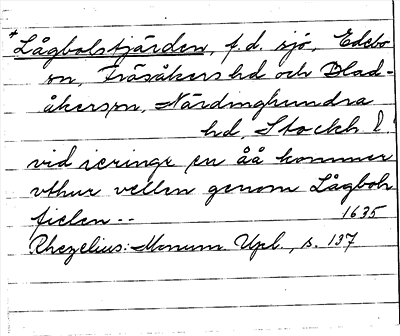 *Lågbolsfjärden, f.d. sjö, Edebo
sn, Frösåkers hd och Blad-
åkers sn, Närdinghundra
hd, Stockh l.
vid iceringe en åå kommer
vthur vellen genom Lågboh
fielen--
1635
Rhezelius: Monum Upl., s. 137